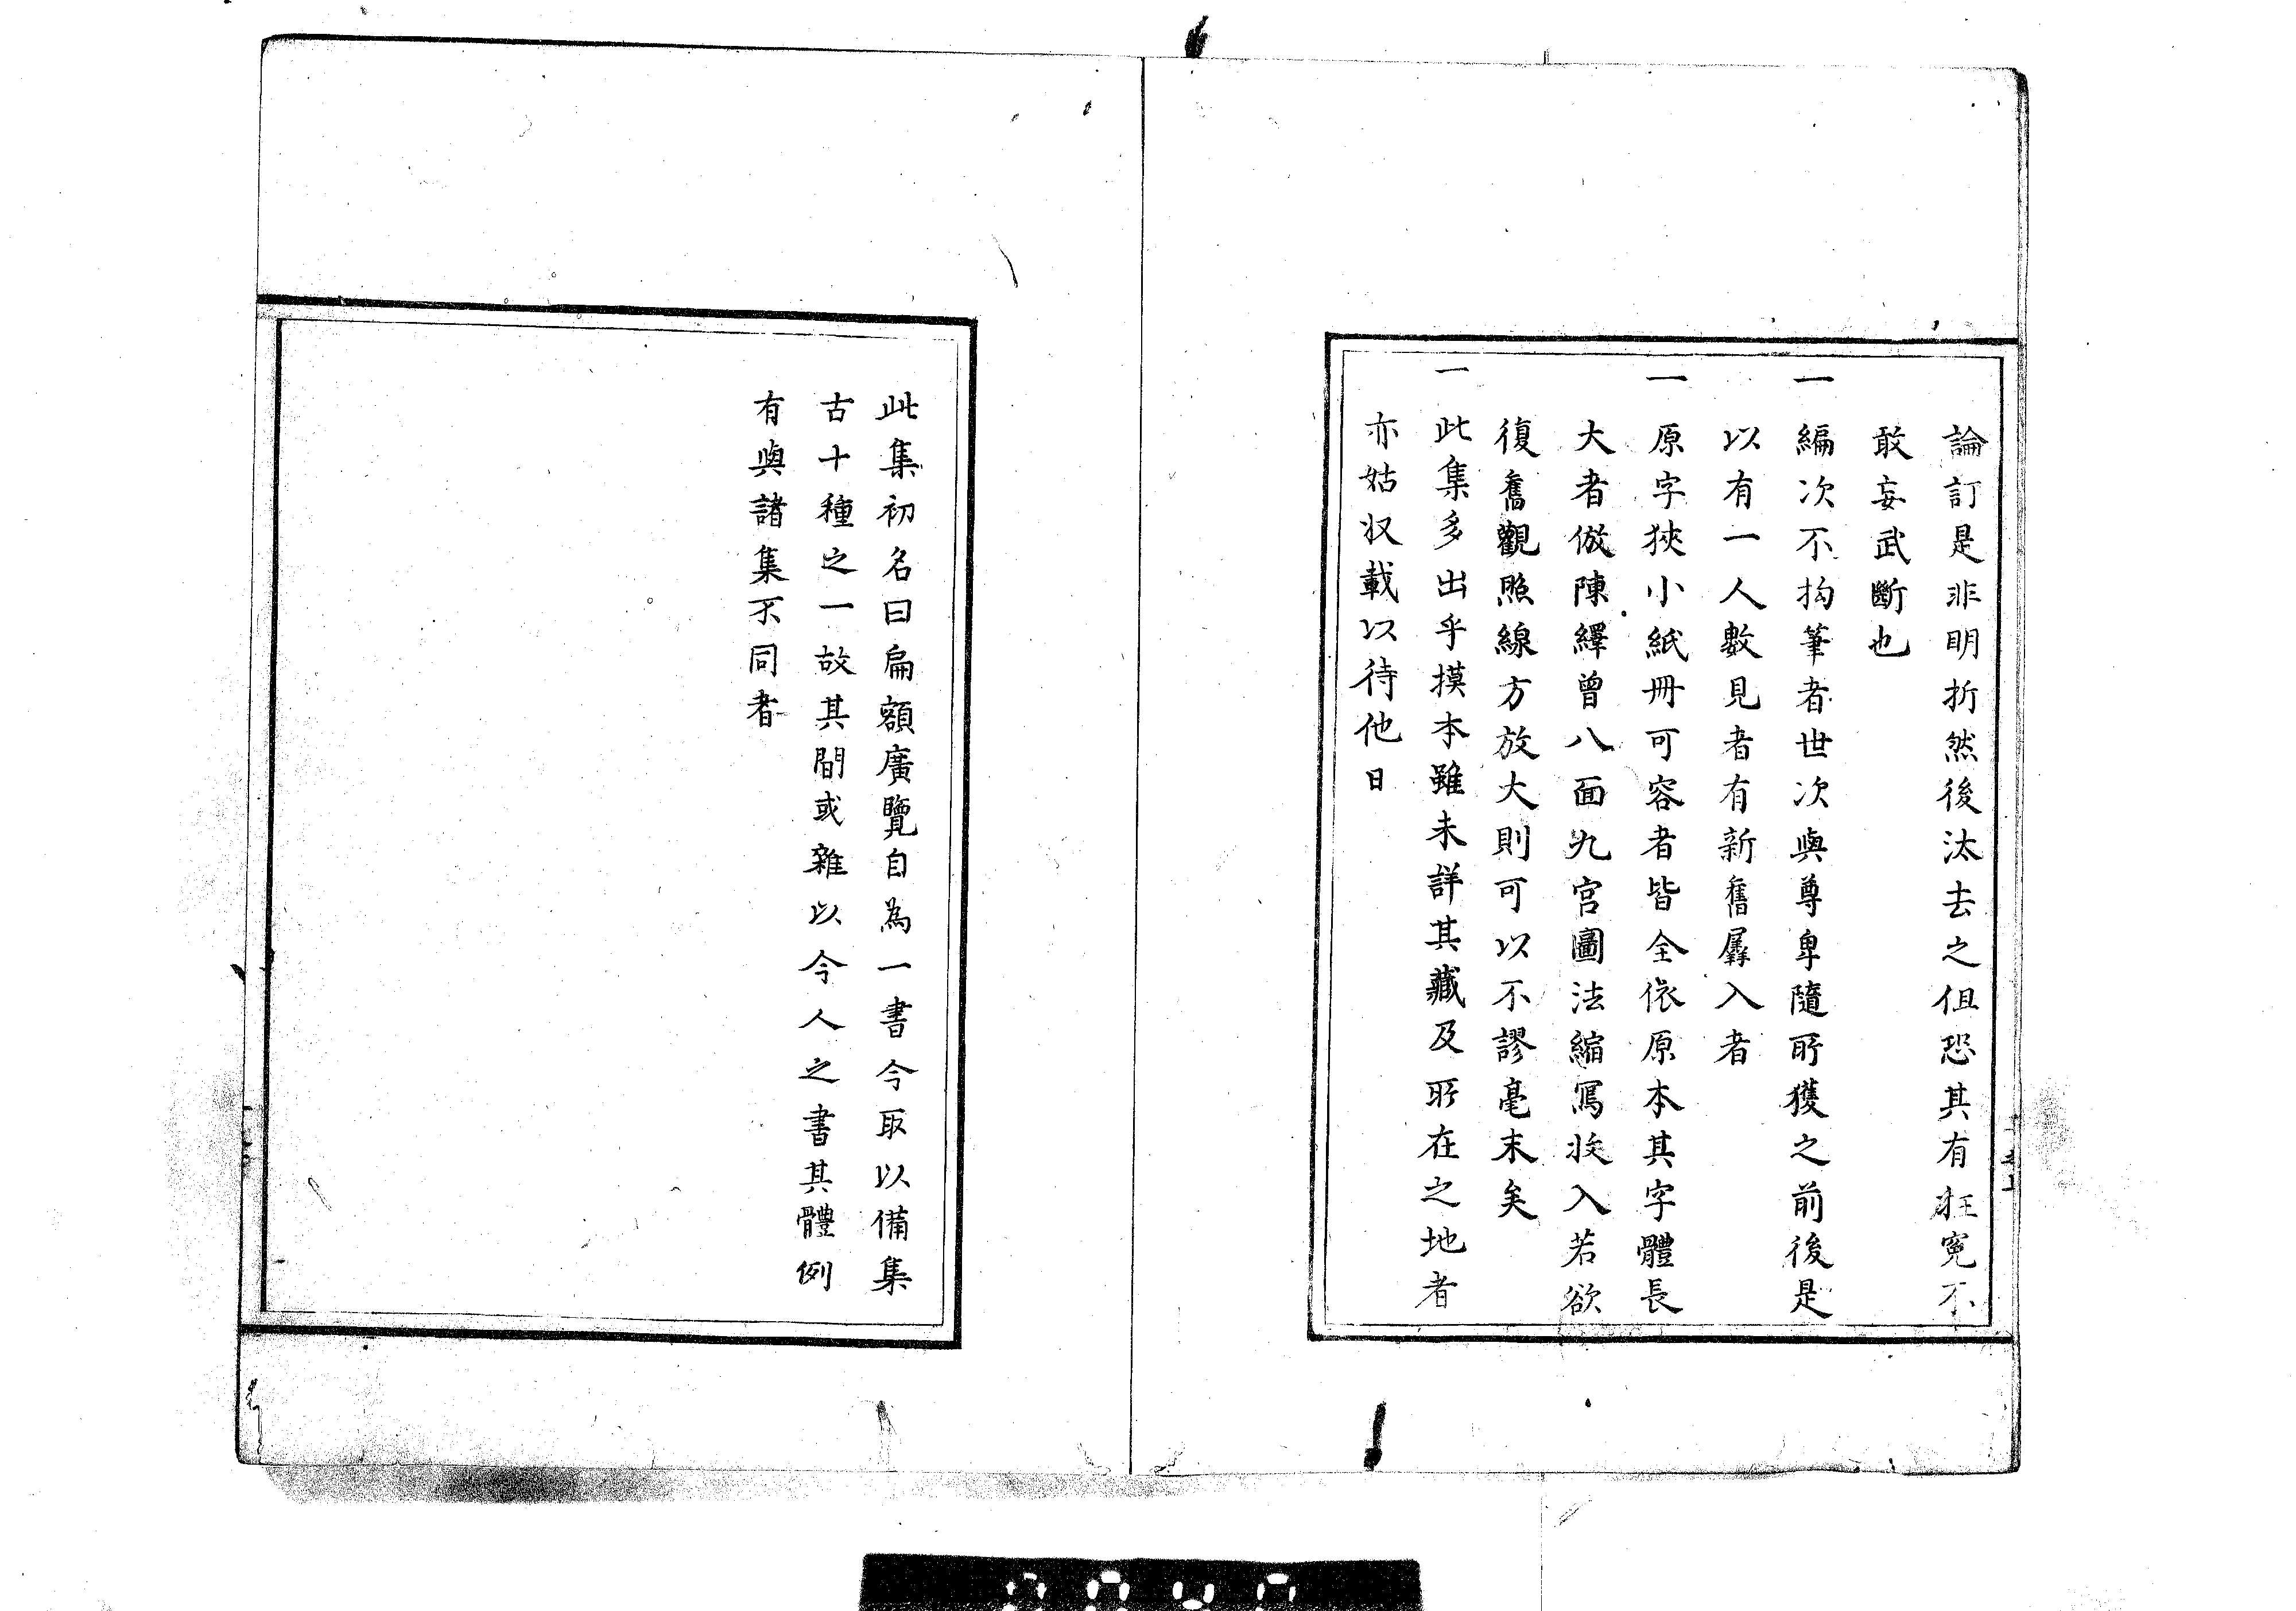 論訂是非明折然後汰去之但恐其有枉冤不
敢妄武斷也
一編次不拘筆者世次與尊卑隨所獲之前後是
以有一人數見者有新舊羼入者
一原字狹小紙冊可容者皆全依原本其字體長
大者倣陳繹曾八面九宮圖法縮寫收入若欲
復舊觀照線方放大則可以不謬毫末矣
一此集多出乎摸本雖未詳其藏及所在之地者
亦姑収載以待他日
此集初名曰扁額廣覽自為一書今取以備集
古十種之一故其間或雜以今人之書其體例
有與諸集不同者